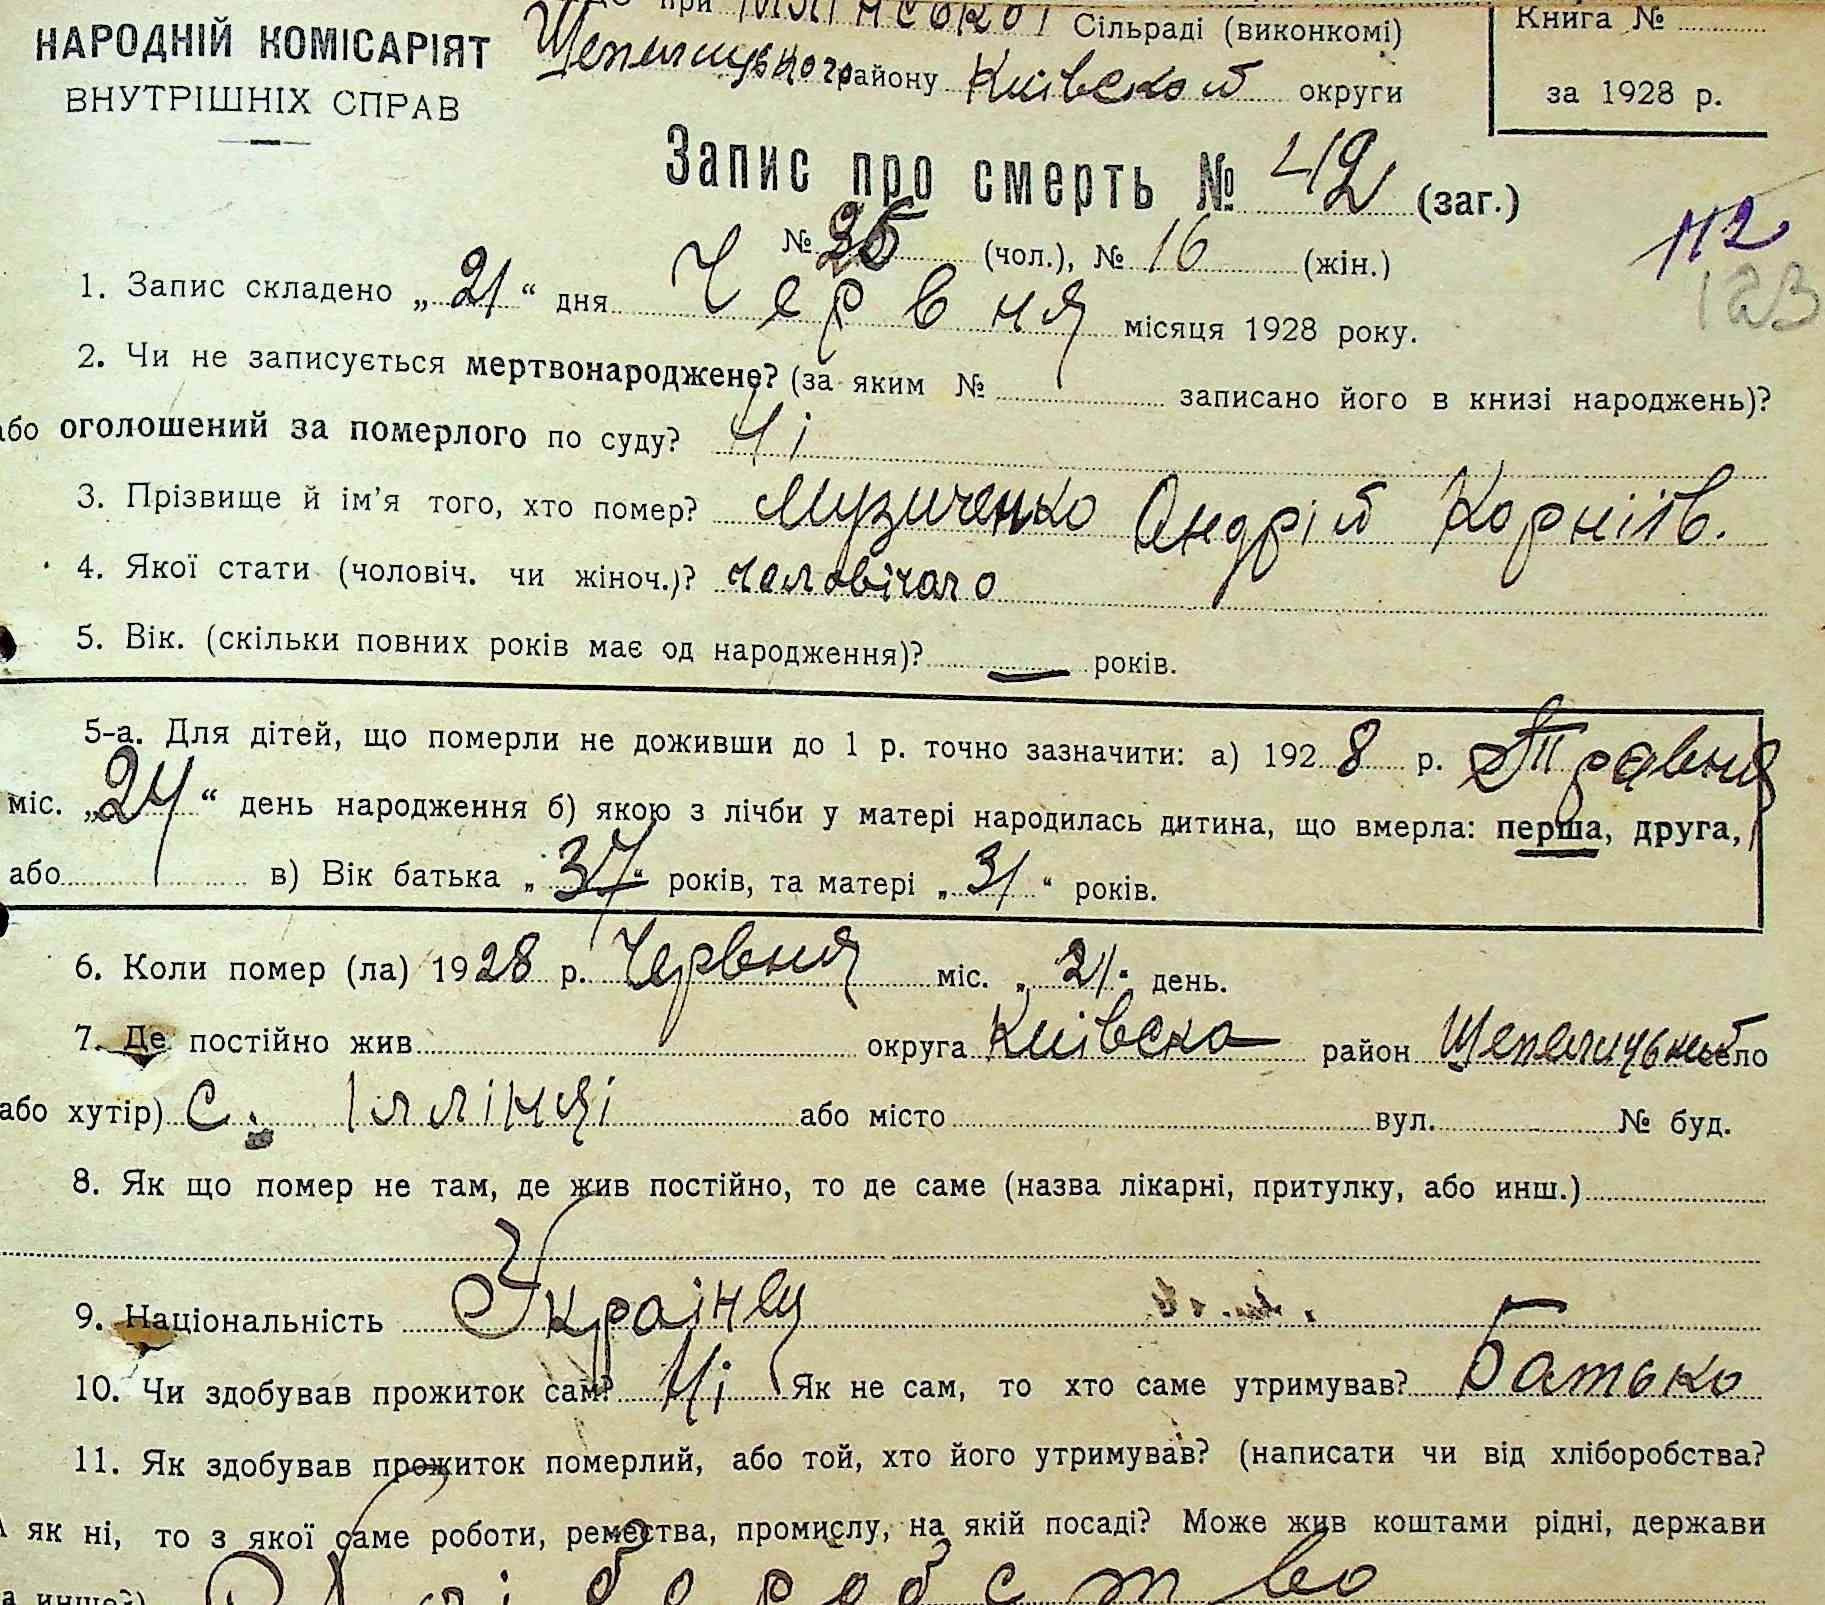 НАРОДНІЙ КОМІСАРІЯТ
ВНУТРІШНІХ СПРАВ
при Іллінської Сільраді (виконкомі)
Шепелицького району Київской округи
Книга №
за 1928 р.
Запис про смерть № 42 (заг.)
№ 26 (чол.), № 16 (жін.)
112
123
1. Запис складено „21“ дня Червня місяця 1928 року.
2. Чи не записується мертвонароджене? (за яким № записано його в книзі народжень)?
або оголошений за померлого по суду? Ні
3. Прізвище й ім'я того, хто помер? Музиченко Андрій Корніїв.
4. Якої стати (чоловіч. чи жіноч.)? человічаго
5. Вік. (скільки повних років має од народження)? — років.
5-а. Для дітей, що померли не доживши до 1 р. точно зазначити: а) 1928 р. Травня
міс. „24“ день народження б) якою з лічби у матері народилась дитина, що вмерла: перша, друга,
або в) Вік батька „37“ років, та матері „31“ років.
6. Коли помер (ла) 1928 р. Червня міс. „21“ день.
7. Де постійно жив округа Київска район Шепелицький село
або хутір) с. Іллінці або місто вул. № буд.
8. Як що помер не там, де жив постійно, то де саме (назва лікарні, притулку, або инш.)
9. Національність Українец
10. Чи здобував прожиток сам? Ні Як не сам, то хто саме утримував? Батько
11. Як здобував прожиток померлий, або той, хто його утримував? (написати чи від хліборобства?
А як ні, то з якої саме роботи, ремества, промислу, на якій посаді? Може жив коштами рідні, держави
Хліборобство